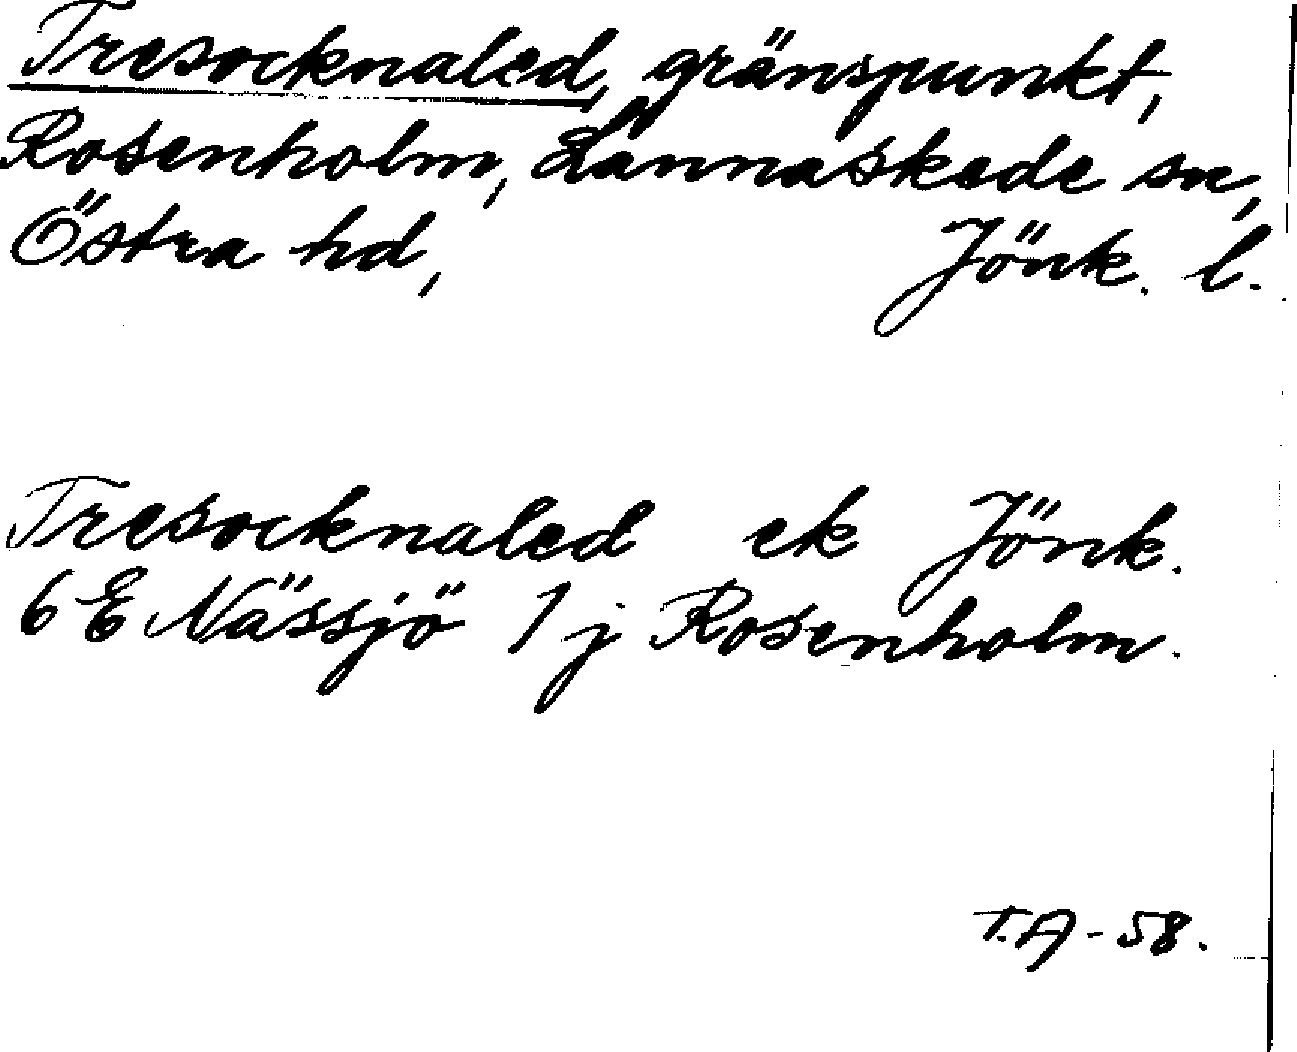 Tresocknaled, gränspunkt,
Rosenholm, Lannaskede sn,
Östra hd, Jönk. l.
Tresocknaled ek Jönk.
6 E Nässjö 1 j Rosenholm.
T.A - 58.